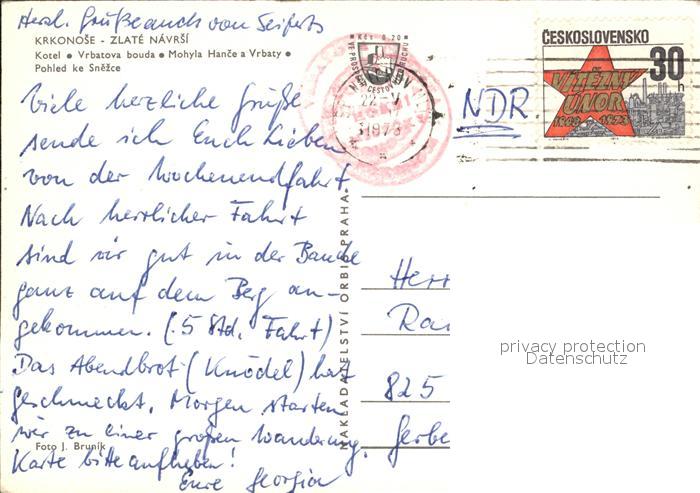 Herzl. Grüße auch von Seiferts
KRKONOŠE - ZLATÉ NÁVRŠÍ
Kotel • Vrbatova bouda • Mohyla Hanče a Vrbaty •
Pohled ke Sněžce
Viele herzliche Grüße
sende ich Euch Lieben
von der Wochenendfahrt.
Nach herrlicher Fahrt
sind wir gut in der Baude
ganz auf dem Berg an-
gekommen. (5 Std. Fahrt)
Das Abendbrot (Knödel) hat
geschmeckt. Morgen starten
wir zu einer großen Wanderung.
Foto J. Bruník
Karte bitte aufheben!
Eure Georgia
NAKLADATELSTVÍ ORBIS PRAHA
Kčs 0,20
22.-V.
1973
ČESKOSLOVENSKO
30 h
VÍTĚZNÝ
ÚNOR
1948 1973
NDR
Herr
Rai
825
Gerbe
privacy protection
Datenschutz